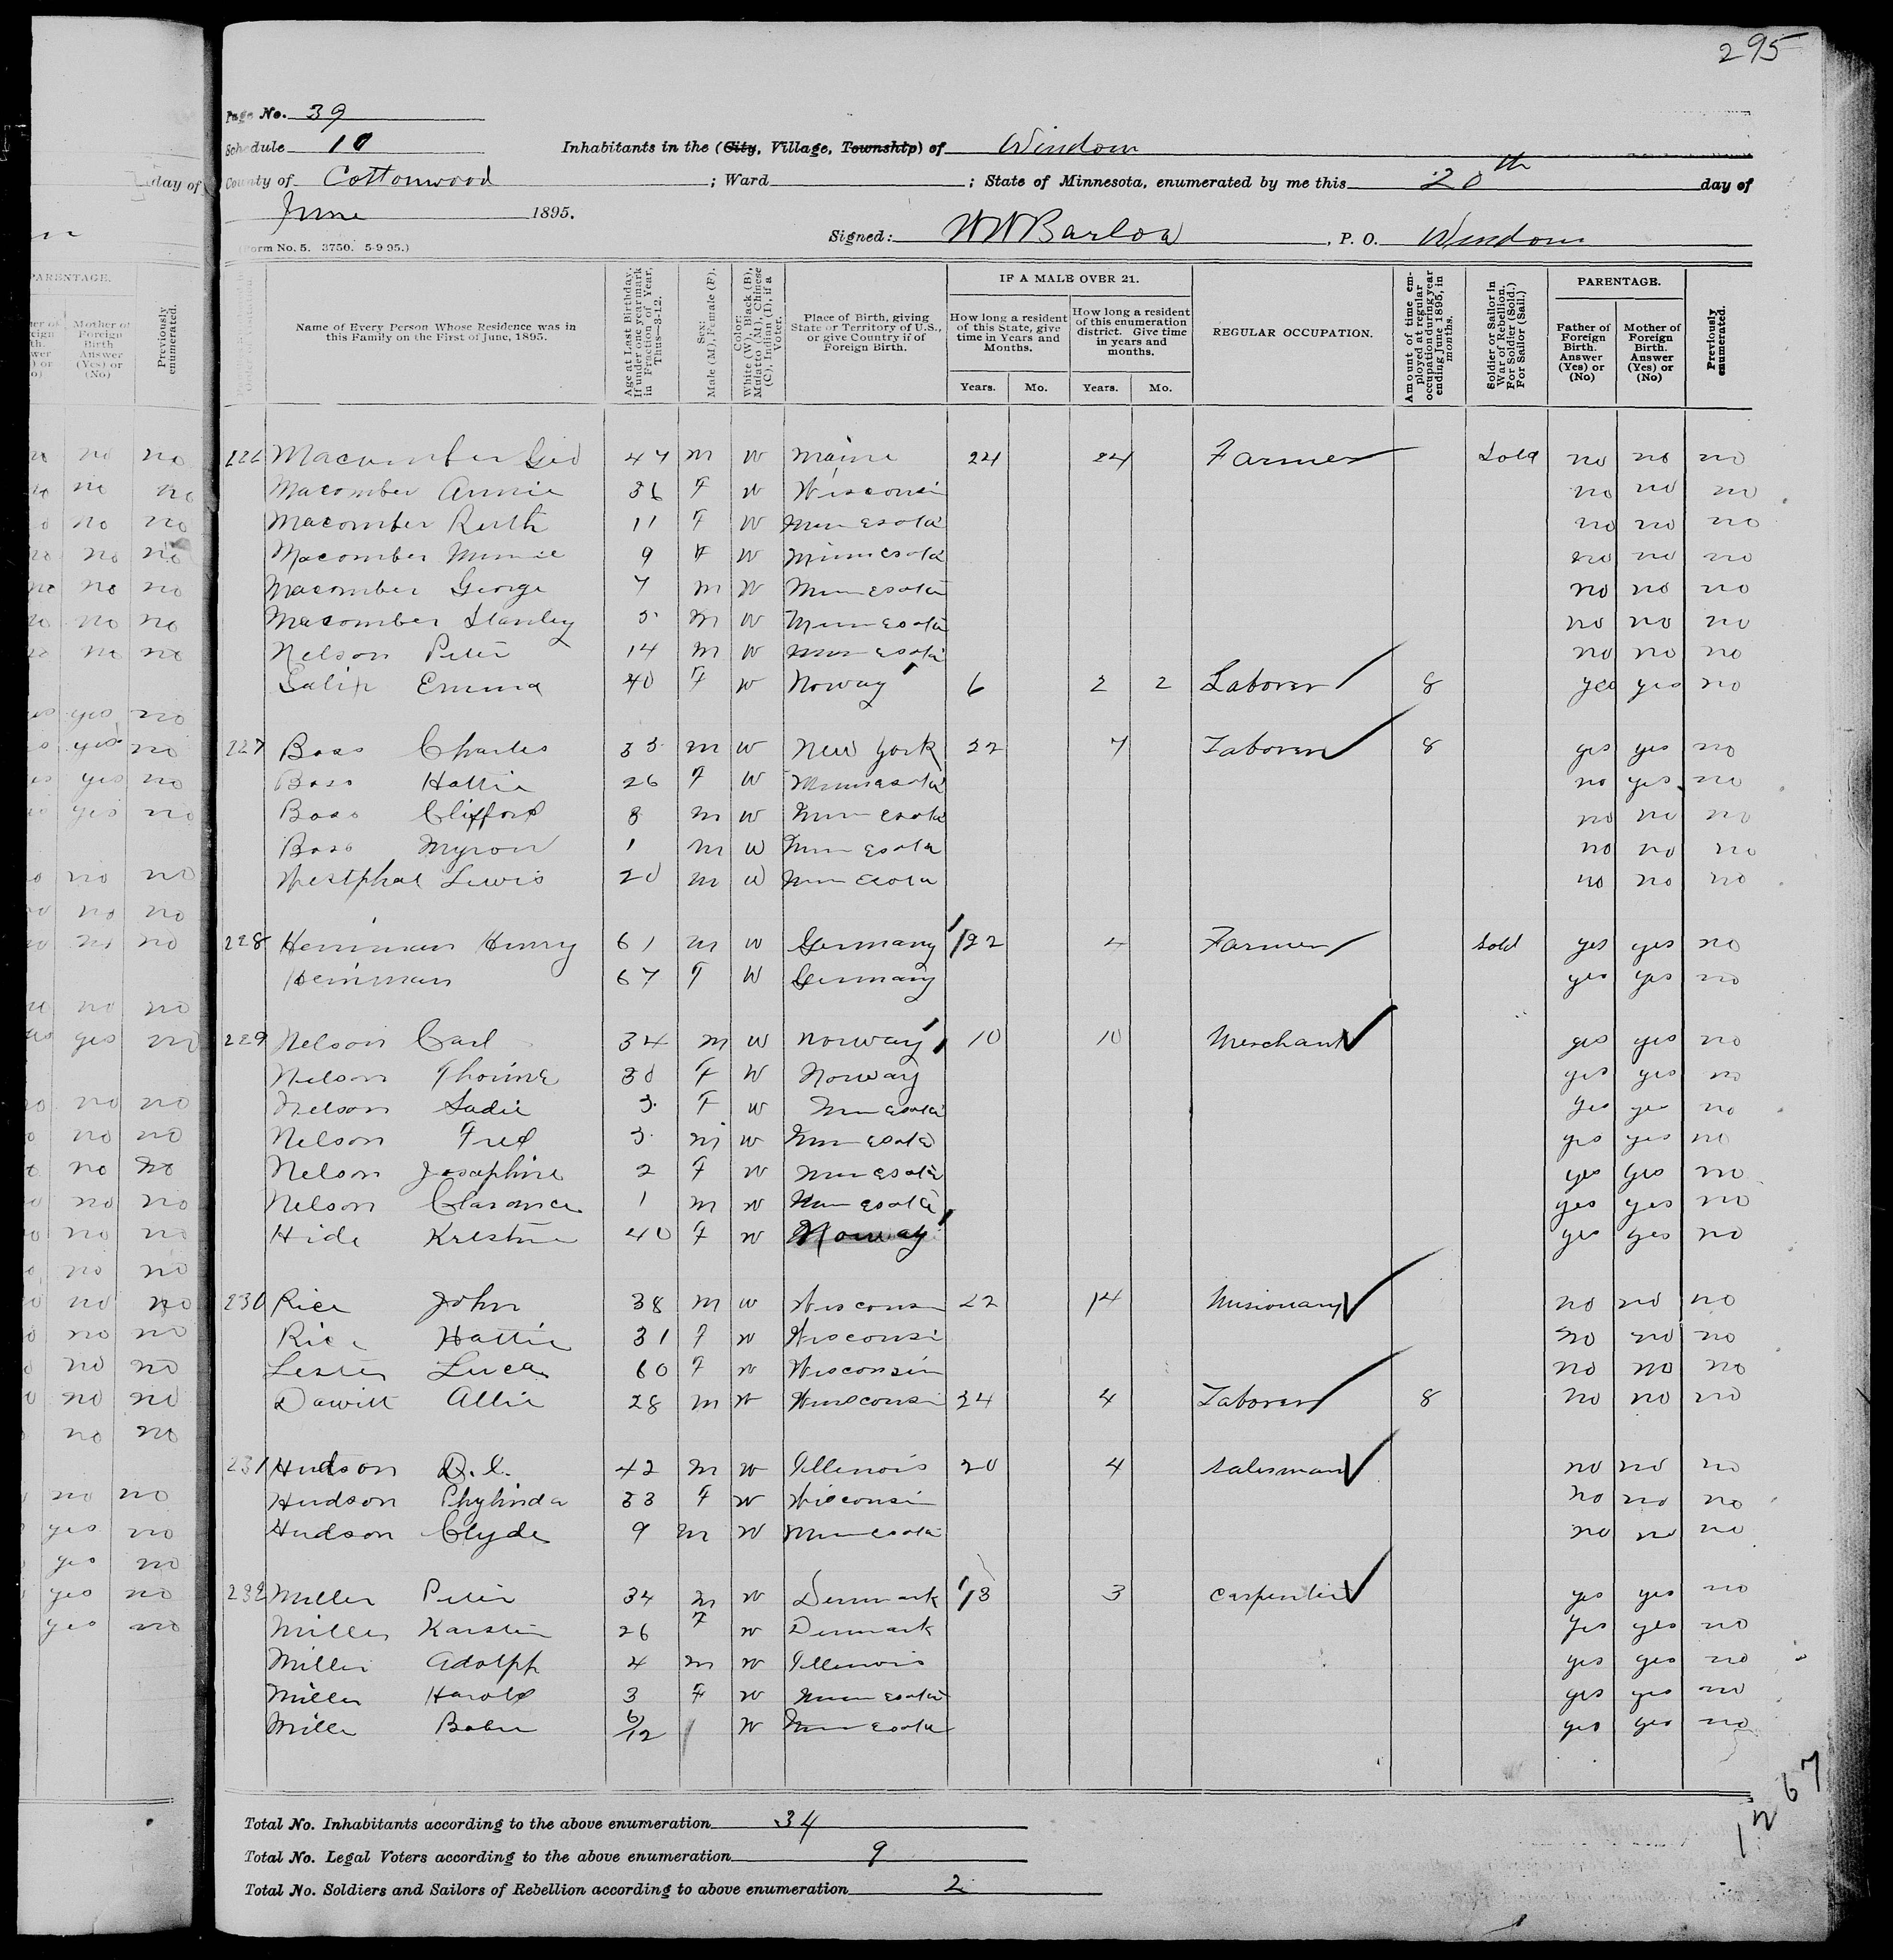 295
Page No. 39
Schedule 10 Inhabitants in the (City, Village, Township) of Windom
County of Cottonwood ; Ward ; State of Minnesota, enumerated by me this 20th day of
June 1895.
(Form No. 5. 3750. 5-9-95.) Signed: W W Barlow , P. O. Windom
Name of Every Person Whose Residence was in this Family on the First of June, 1895.
Age at Last Birthday. If under one year mark in Fraction of Year, Thus—3-12.
Sex: Male (M), Female (F),
Color: White (W), Black (B), Mulatto (M), Chinese (C), Indian (I), if a Voter.
Place of Birth, giving State or Territory of U.S., or give Country if of Foreign Birth.
IF A MALE OVER 21.
How long a resident of this State, give time in Years and Months.
How long a resident of this enumeration district. Give time in years and months.
Years. Mo. Years. Mo.
REGULAR OCCUPATION.
Amount of time employed at regular occupation during year ending June 1895, in months.
Soldier or Sailor in War of Rebellion. For Soldier (Sold.) For Sailor (Sail.)
PARENTAGE.
Father of Foreign Birth. Answer (Yes) or (No)
Mother of Foreign Birth. Answer (Yes) or (No)
Previously enumerated.
226 Macomber Geo 47 m w Maine 24 24 Farmer Sold no no no
Macomber Annie 36 F w Wisconsin no no no
Macomber Ruth 11 F w Minnesota no no no
Macomber Minnie 9 F w Minnesota no no no
Macomber George 7 m w Minnesota no no no
Macomber Stanley 5 m w Minnesota no no no
Nelson Peter 14 m w Minnesota no no no
Emma 40 F w Norway 6 2 2 Laborer 8 yes yes no
227 Boss Charles 33 m w New York 22 7 Laborer 8 yes yes no
Boss Hattie 26 F w Minnesota no yes no
Boss Clifford 8 m w Minnesota no no no
Boss Myron 1 m w Minnesota no no no
Westphal Lewis 20 m w Minnesota no no no
228 Heniman Henry 61 m w Germany 22 4 Farmer Sold yes yes no
Heniman 67 F w Germany yes yes no
229 Nelson Carl 34 m w Norway 10 10 Merchant yes yes no
Nelson Thorine 30 F w Norway yes yes no
Nelson Sadie 5 F w Minnesota yes yes no
Nelson Fred 3 m w Minnesota yes yes no
Nelson Josephine 2 F w Minnesota yes yes no
Nelson Clarance 1 m w Minnesota yes yes no
Hide Krestine 40 F w Norway yes yes no
230 Rice John 38 m w Wisconsin 22 14 Missionary no no no
Rice Hattie 31 F w Wisconsin no no no
Lester Luca 60 F w Wisconsin no no no
Dawitt Allie 28 m w Wisconsin 24 4 Laborer 8 no no no
231 Hudson D. L. 42 m w Illenois 20 4 Salesman no no no
Hudson Phylinda 33 F w Wisconsin no no no
Hudson Clyde 9 m w Minnesota no no no
232 Miller Peter 34 m w Denmark 13 3 Carpenter yes yes no
Miller Karstin 26 F w Denmark yes yes no
Miller Adolph 4 m w Illenois yes yes no
Miller Harold 3 F w Minnesota yes yes no
Miller 6/12 w Minnesota yes yes no
Total No. Inhabitants according to the above enumeration 34
Total No. Legal Voters according to the above enumeration 9
Total No. Soldiers and Sailors of Rebellion according to above enumeration 2
1267